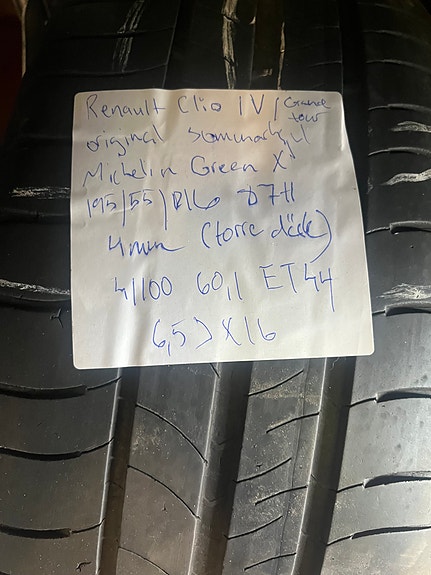 Renault Clio IV / Grand tour
original sommarhjul
Michelin Green X
195/55/R16 87H
4mm (torra däck)
4/100 60,1 ET44
6,5J X16